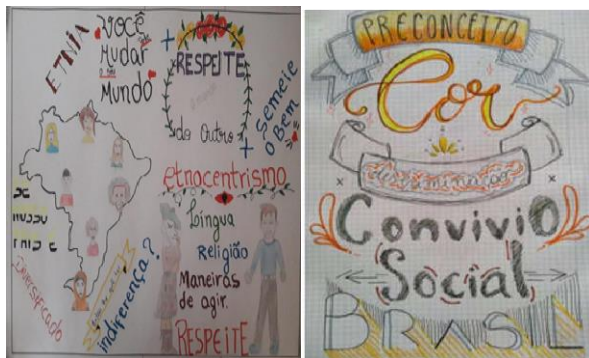 ETNIA
Você
Mudar
o seu
Mundo
+ RESPEITE
do Outro
+ Semeie
o Bem
etnocentrismo
Língua
Religião
Maneiras
de agir.
RESPEITE
Diversificado
indiferença?
PRECONCEITO
Cor
discriminação
Convivio
Social
BRASIL